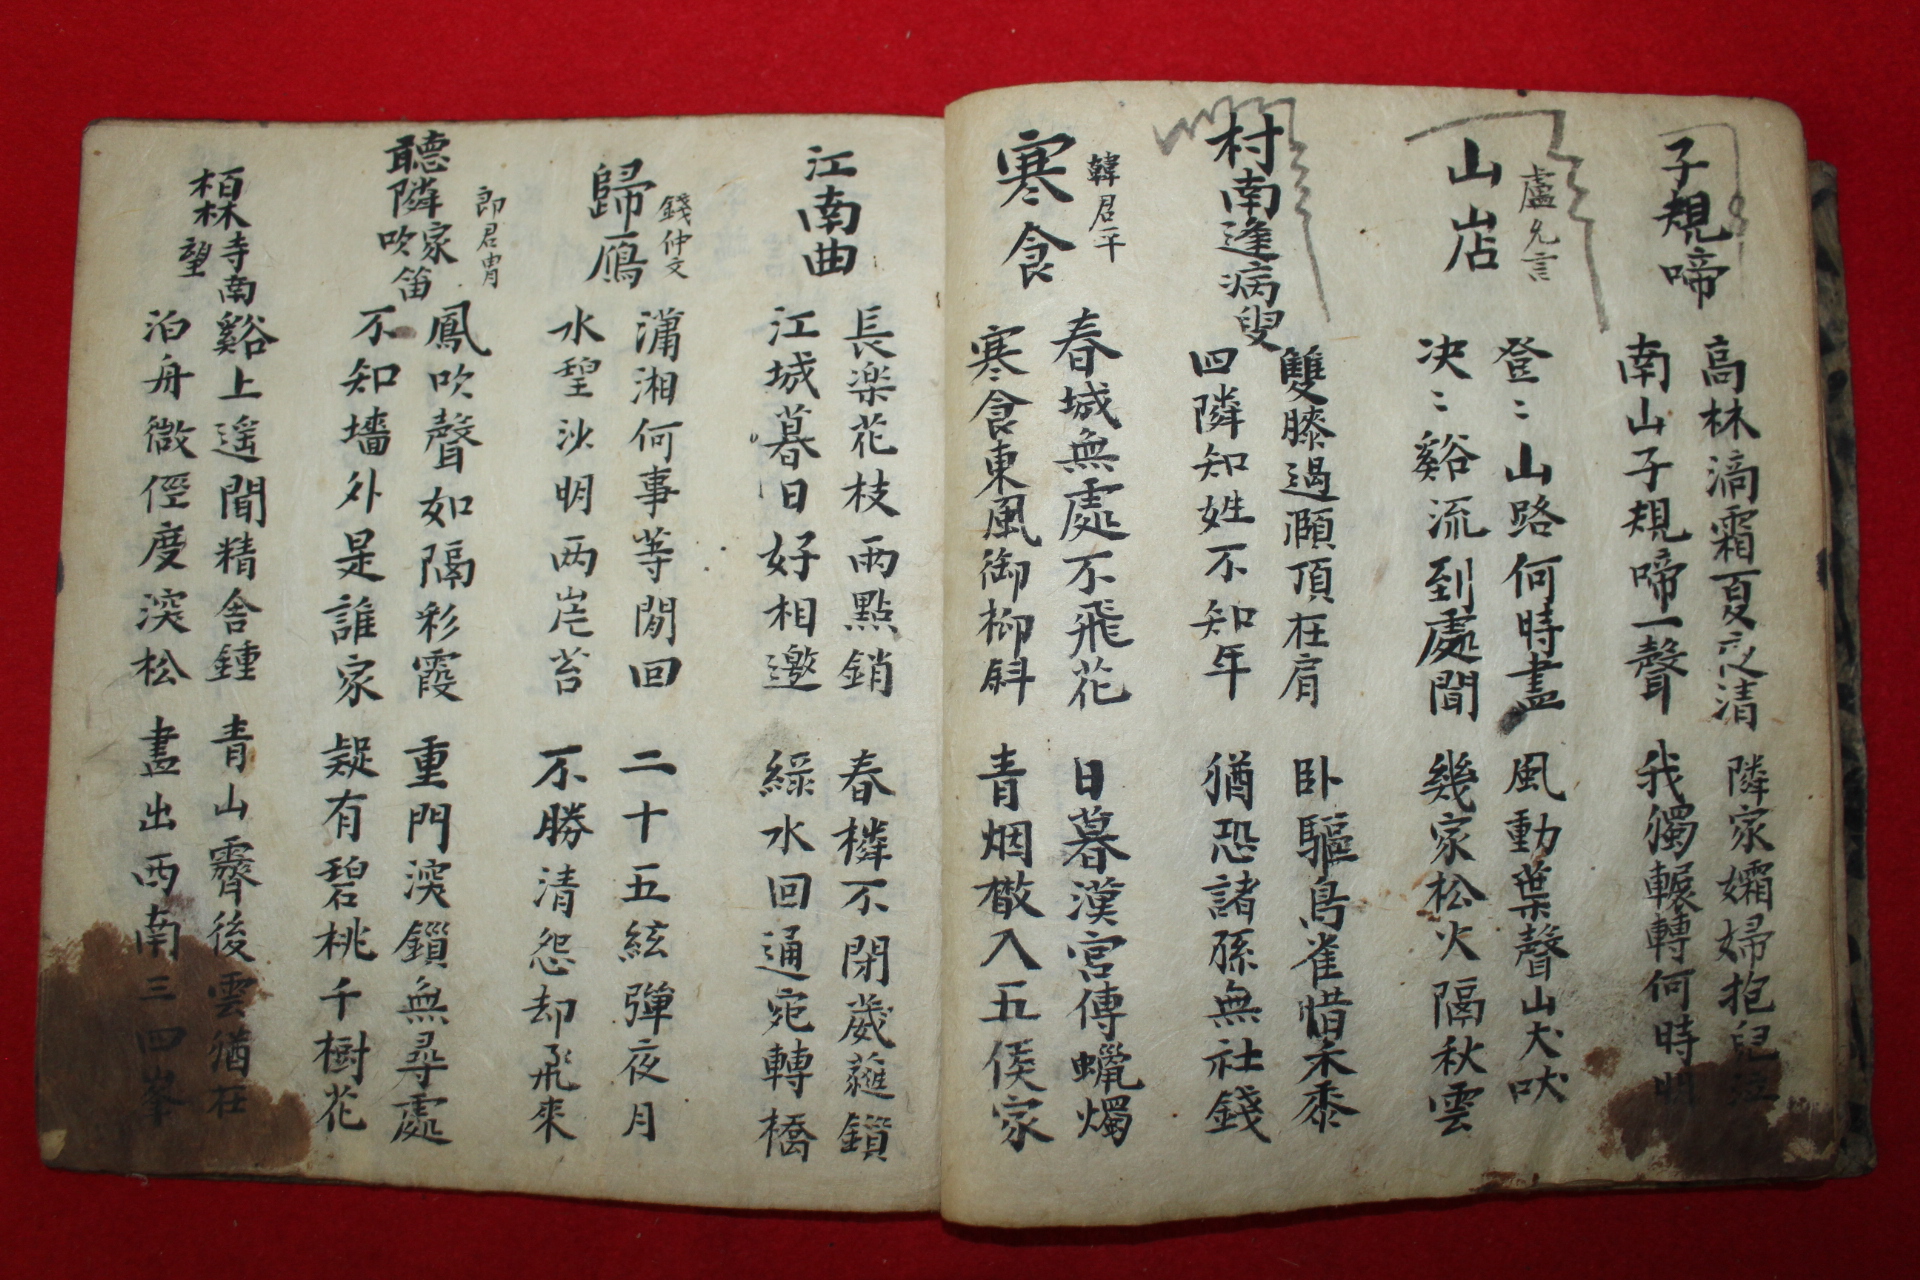 子規啼
高林滴霜夏夜清
南山子規啼一聲
隣家孀婦抱兒泣
我獨輾轉何時明
山店
盧允言
登〻山路何時盡
决〻谿流到處聞
風動葉聲山犬吠
幾家松火隔秋雲
村南逢病叟
雙膝過顋頂在肩
四隣知姓不知年
卧驅鳥雀惜禾黍
猶恐諸孫無社錢
寒食
韓君平
春城無處不飛花
寒食東風御柳斜
日暮漢宮傳蠟燭
青烟散入五侯家
江南曲
長楽花枝雨點銷
江城暮日好相邀
春樓不閉葳蕤鎖
綠水回通宛轉橋
歸鴈
錢仲文
瀟湘何事等閒回
水碧沙明两岸苔
二十五絃彈夜月
不勝清怨却飛來
聽隣家吹笛
郎君冑
鳳吹聲如隔彩霞
不知墻外是誰家
重門深鎖無尋處
疑有碧桃千樹花
栢林寺南望
谿上遙聞精舍鍾
泊舟微徑度深松
青山霽後雲猶在
畫出西南三四峯